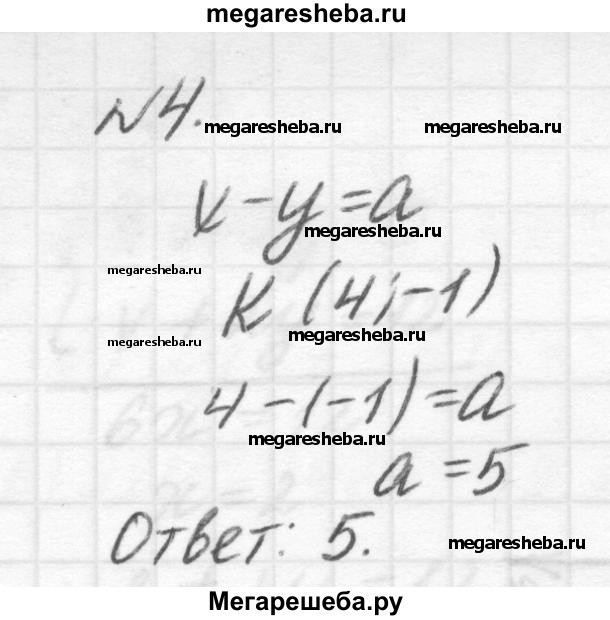 megaresheba.ru
№4.
megaresheba.ru megaresheba.ru
x-y=a
megaresheba.ru
megaresheba.ru
K (4;-1)
megaresheba.ru
megaresheba.ru
4-(-1)=a
megaresheba.ru
a=5
Ответ: 5.
megaresheba.ru
Мегарешеба.ру